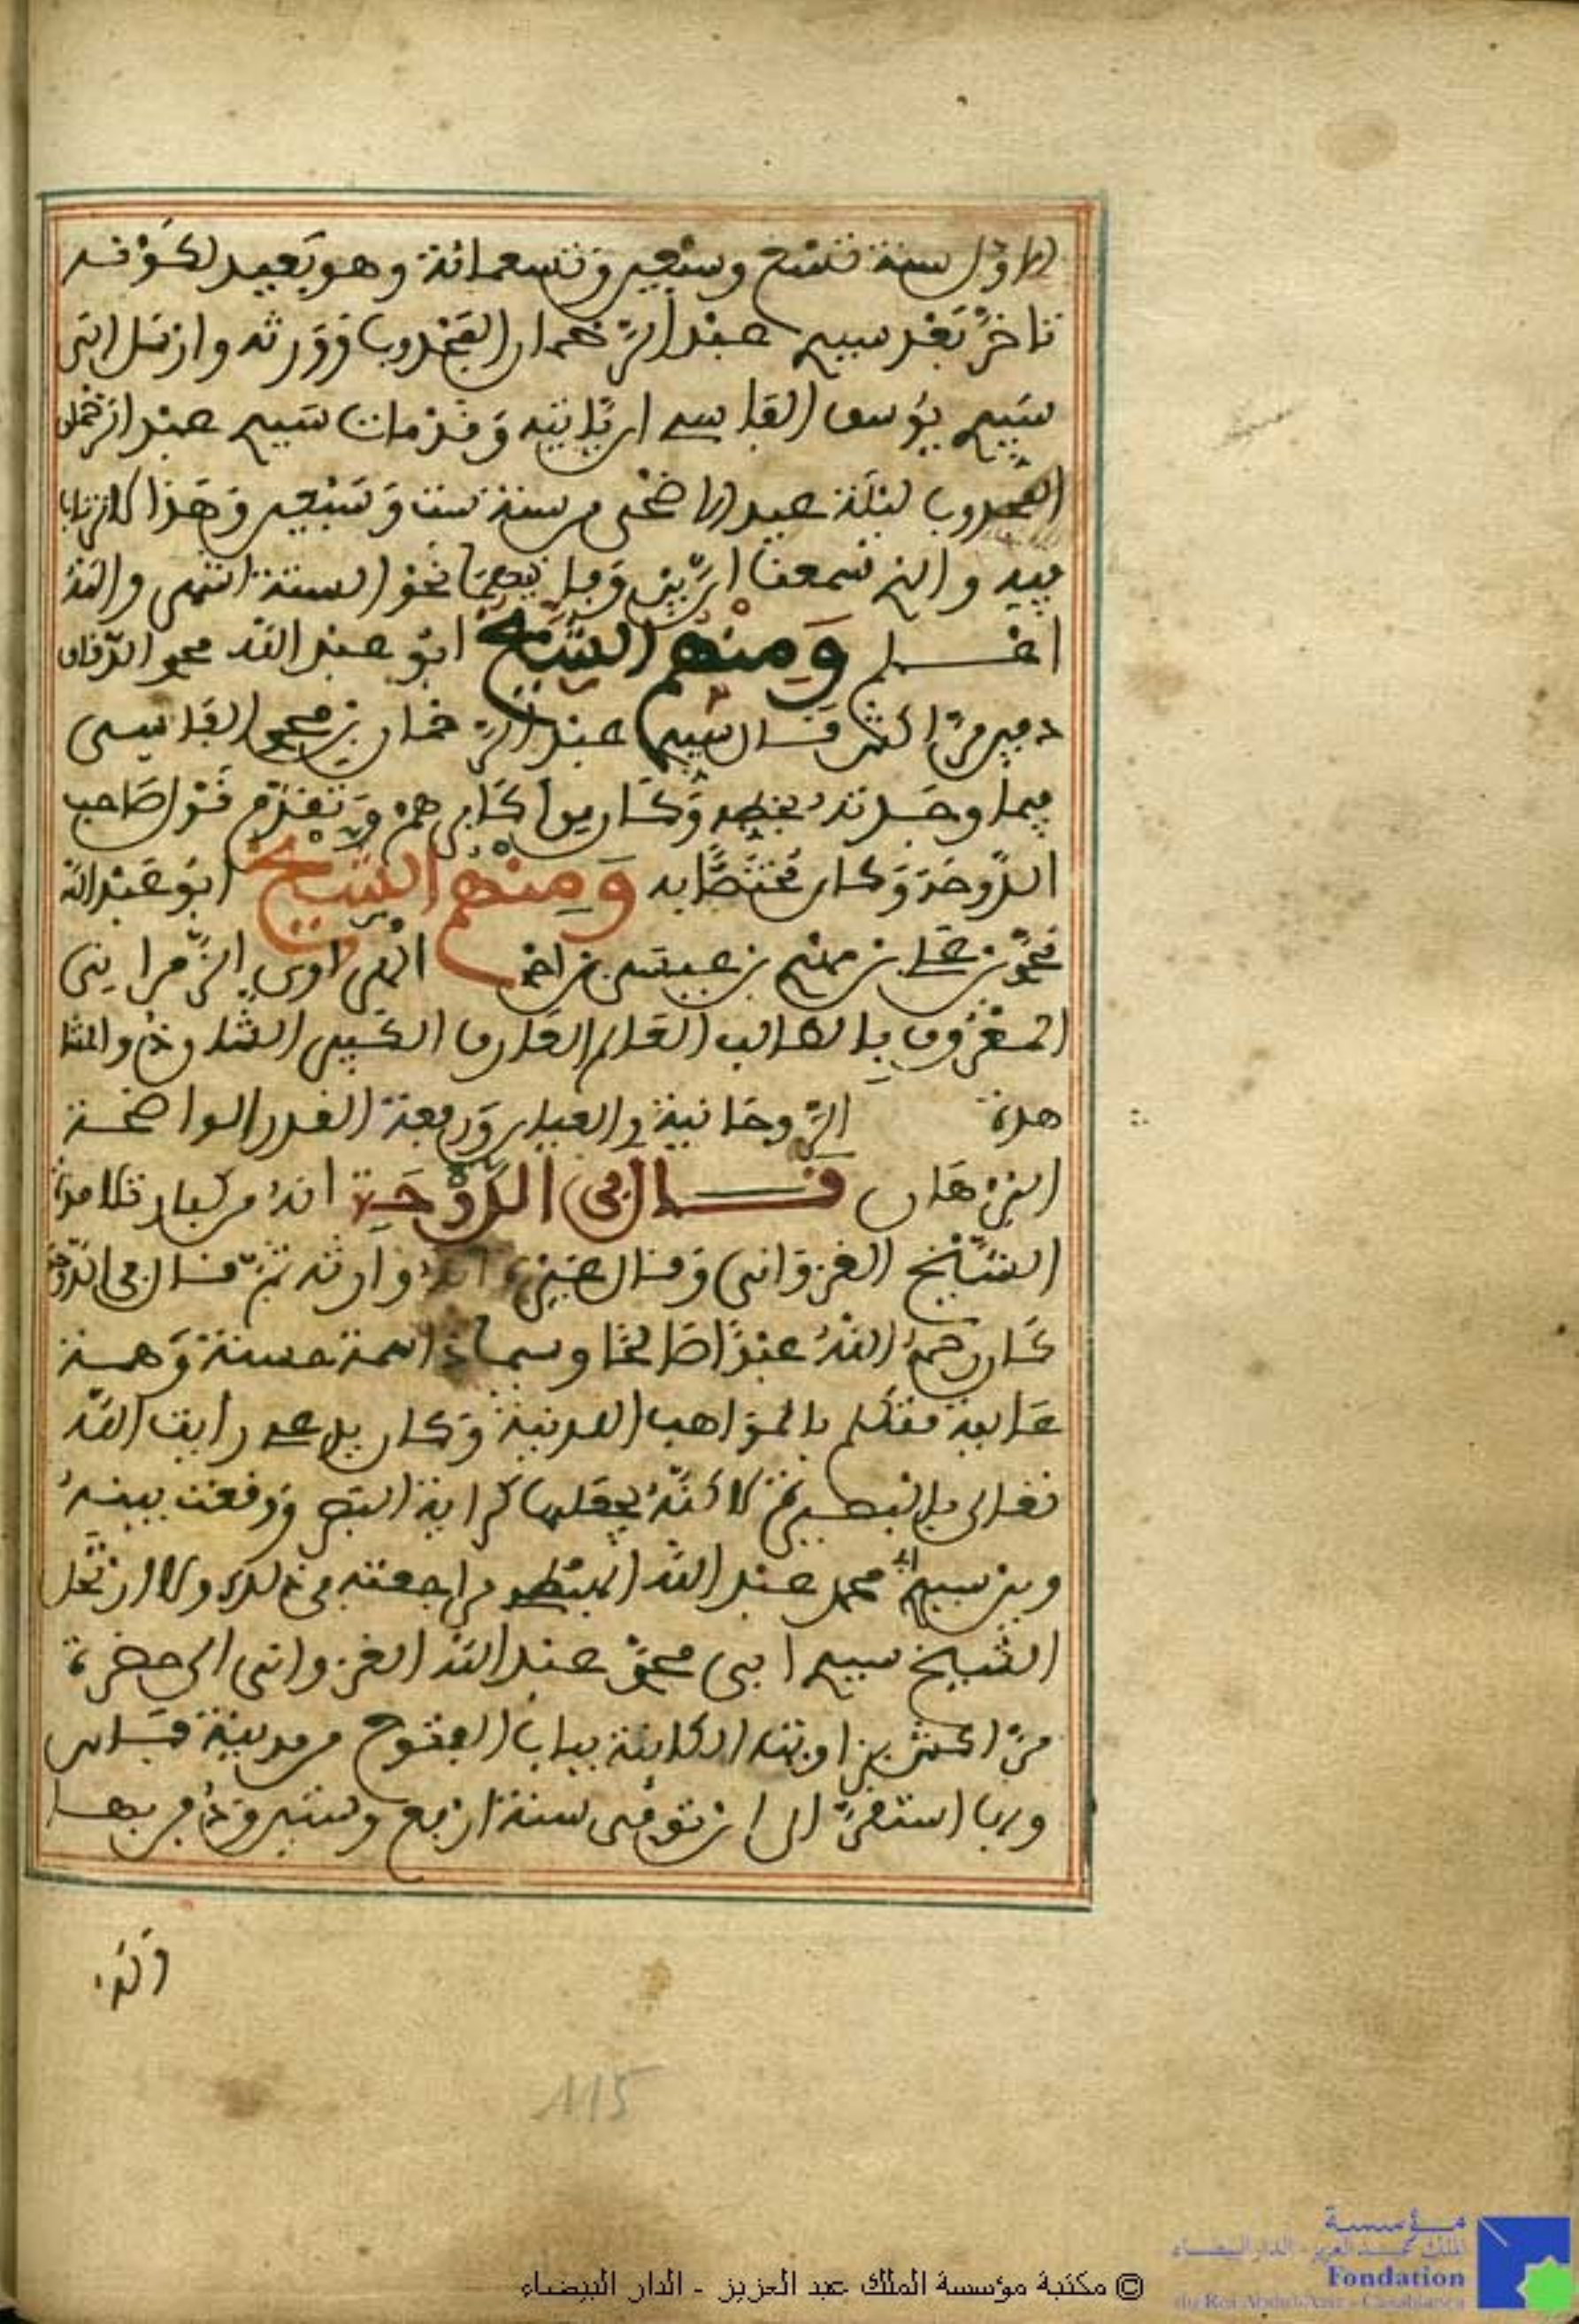 الاول سنة تسع وسبعين وتسعمائة وهو بعيد لكونه
تاخر بعد سيدي عبد الرحمان المجذوب وورثه وارسل الى
سيدي يوسف الفاسي ان يأتيه وقد مات سيدي عبد الرحمن
المجذوب ليلة عيد الاضحى من سنة ست وسبعين وهذا لا ارتياب
فيه والذي سمعنا ان بين وفاتيهما نحو السنة انتهى والله
اعلم ومنهم الشيخ ابو عبد الله محمد
دفين مراكش قال سيدي عبد الرحمان بن محمد الفاسي
فيما وجدته بخطه وكان من اكابرهم وتقدم قول صاحب
الدوحة وكان مختصا به ومنهم الشيخ ابو عبد الله
محمد بن علي بن مهدي بن عيسى بن احمد الهراوي الزمراني
المعروف بالطالب العالم العارف الكبير الشان ذو المشا
هدة الروحانية والعيان ورفعة القدر الواضحة
البرهان قال في الدوحة انه من كبار تلامذة
الشيخ الغزواني وقال غيره انه وارثه ثم قال في الدوحة
كان رحمه الله عبدا صالحا وسما ذا سمة حسنة وهمة
عالية متكلم بالمواهب اللدنية وكان يدعي رايت الله
تعالى بالبصيرة لاكنه يجعلها كراية البصر ووقعت بينه
وبين سيدي ابي محمد عبد الله الهبطي مراجعة في ذلك ولما ارتحل
الشيخ سيدي ابي محمد عبد الله الغزواني الى حضرة
مراكش بزاويته الكاينة بباب الفتوح من مدينة فاس
وبها استقر الى ان توفى سنة اربع وستين ودفن بها
وله
115
© مكتبة مؤسسة الملك عبد العزيز - الدار البيضاء
مؤسسة
الملك عبد العزيز - الدار البيضاء
Fondation
du Roi Abdul-Aziz - Casablanca